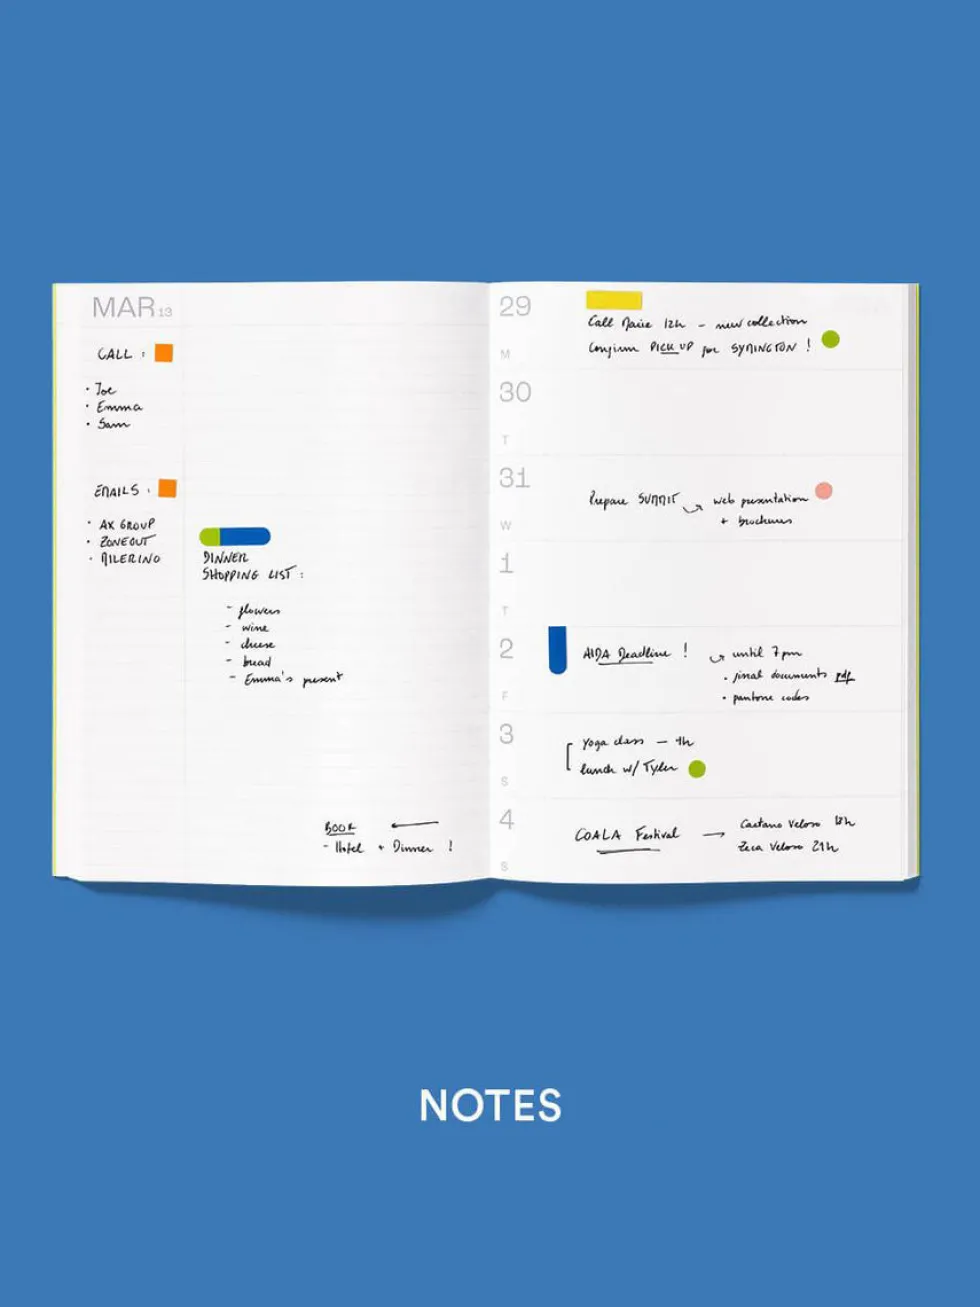 MAR 13
CALL :
• Joe
• Emma
• Sam
EMAILS :
• AX GROUP
• ZONEOUT
• AILERINO
DINNER
SHOPPING LIST :
- flowers
- wine
- cheese
- bread
- Emma's present
BOOK
- Hotel + Dinner !
29
M
Call Marie 12h - new collection
Confirm PICK UP for SYMINGTON !
30
T
31
W
Prepare SUMMIT → web presentation
+ brochures
1
T
2
F
AIDA Deadline ! → until 7 pm
• final documents pdf
• pantone codes
3
S
Yoga class -
lunch w/ Tyler
4
S
COALA Festival → Caetano Veloso 18h
Zeca Veloso 21h
NOTES